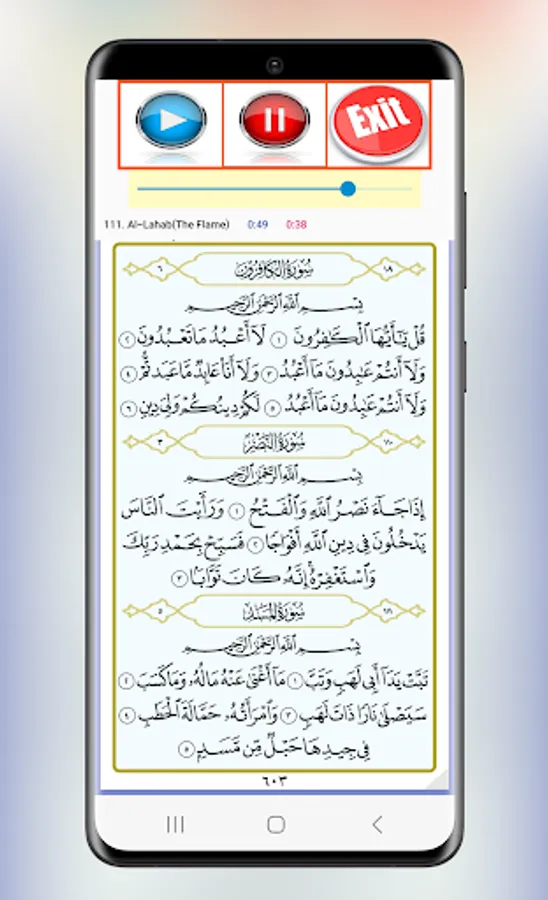 Exit
111. Al-Lahab(The Flame) 0:49 0:38
٦ سُورَةُ الكَافِرُونَ ١٠٩
بِسْمِ اللَّهِ الرَّحْمَٰنِ الرَّحِيمِ
قُلْ يَٰٓأَيُّهَا ٱلْكَٰفِرُونَ ١ لَآ أَعْبُدُ مَا تَعْبُدُونَ ٢
وَلَآ أَنتُمْ عَٰبِدُونَ مَآ أَعْبُدُ ٣ وَلَآ أَنَا۠ عَابِدٌ مَّا عَبَدتُّمْ ٤
وَلَآ أَنتُمْ عَٰبِدُونَ مَآ أَعْبُدُ ٥ لَكُمْ دِينُكُمْ وَلِىَ دِينِ ٦
٣ سُورَةُ النَّصْرِ
بِسْمِ اللَّهِ الرَّحْمَٰنِ الرَّحِيمِ
إِذَا جَآءَ نَصْرُ ٱللَّهِ وَٱلْفَتْحُ ١ وَرَأَيْتَ ٱلنَّاسَ
يَدْخُلُونَ فِى دِينِ ٱللَّهِ أَفْوَاجًا ٢ فَسَبِّحْ بِحَمْدِ رَبِّكَ
وَٱسْتَغْفِرْهُ إِنَّهُۥ كَانَ تَوَّابًۢا ٣
٥ سُورَةُ المَسَدِ
بِسْمِ اللَّهِ الرَّحْمَٰنِ الرَّحِيمِ
تَبَّتْ يَدَآ أَبِى لَهَبٍ وَتَبَّ ١ مَآ أَغْنَىٰ عَنْهُ مَالُهُۥ وَمَا كَسَبَ ٢
سَيَصْلَىٰ نَارًا ذَاتَ لَهَبٍ ٣ وَٱمْرَأَتُهُۥ حَمَّالَةَ ٱلْحَطَبِ ٤
فِى جِيدِهَا حَبْلٌ مِّن مَّسَدٍۭ ٥
٦٠٣